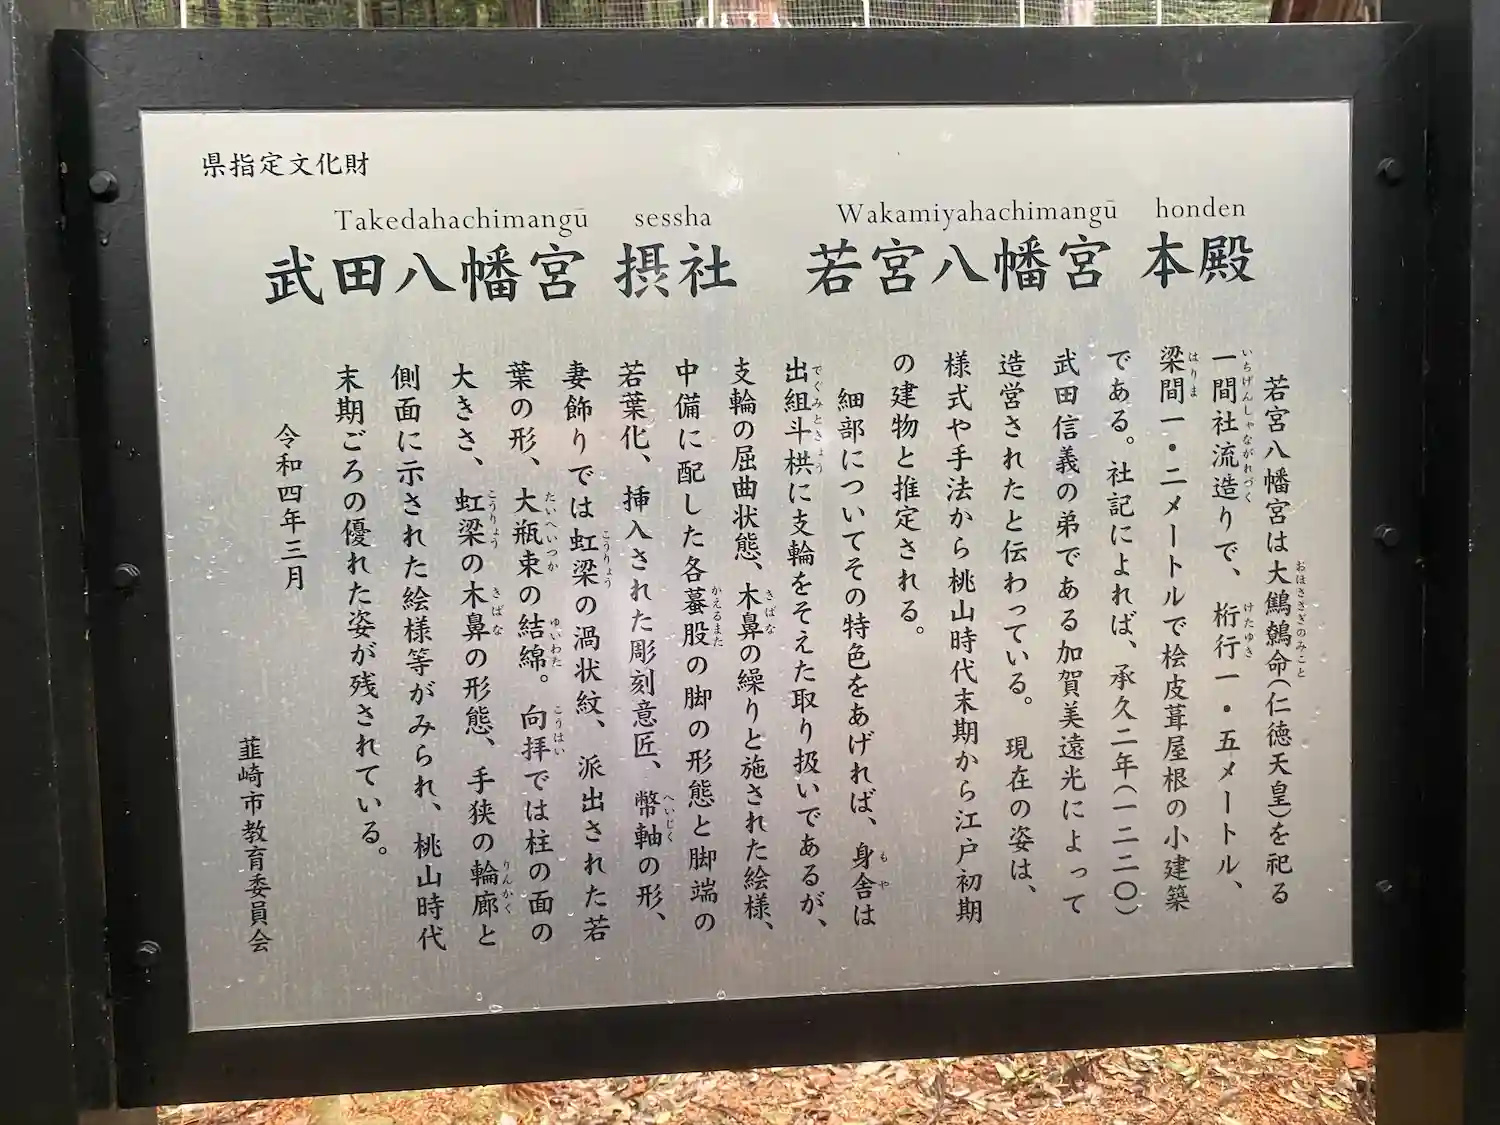 県指定文化財
Takedahachimangū sessha Wakamiyahachimangū honden
武田八幡宮 摂社 若宮八幡宮 本殿
若宮八幡宮は大鷦鷯命(仁徳天皇)を祀る
おほささぎのみこと
一間社流造りで、桁行一・五メートル、
いちげんしゃながれづく
けたゆき
梁間一・二メートルで桧皮葺屋根の小建築
はりま
である。社記によれば、承久二年(一二二〇)
武田信義の弟である加賀美遠光によって
造営されたと伝わっている。現在の姿は、
様式や手法から桃山時代末期から江戸初期
の建物と推定される。
細部についてその特色をあげれば、身舎は
もや
出組斗栱に支輪をそえた取り扱いであるが、
でぐみときょう
支輪の屈曲状態、木鼻の繰りと施された絵様、
きばな
中備に配した各蟇股の脚の形態と脚端の
かえるまた
若葉化、挿入された彫刻意匠、幣軸の形、
へいじく
妻飾りでは虹梁の渦状紋、派出された若
こうりょう
葉の形、大瓶束の結綿。向拝では柱の面の
たいへいつか
ゆいわた
こうはい
大きさ、虹梁の木鼻の形態、手狭の輪廊と
こうりょう
きばな
りんかく
側面に示された絵様等がみられ、桃山時代
末期ごろの優れた姿が残されている。
令和四年三月
韮崎市教育委員会